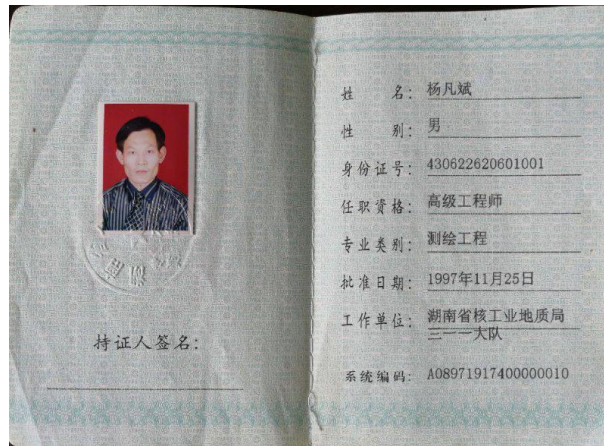 持证人签名:
姓 名: 杨凡斌
性 别: 男
身份证号: 430622620601001
任职资格: 高级工程师
专业类别: 测绘工程
批准日期: 1997年11月25日
工作单位: 湖南省核工业地质局
三一一大队
系统编码: A08971917400000010